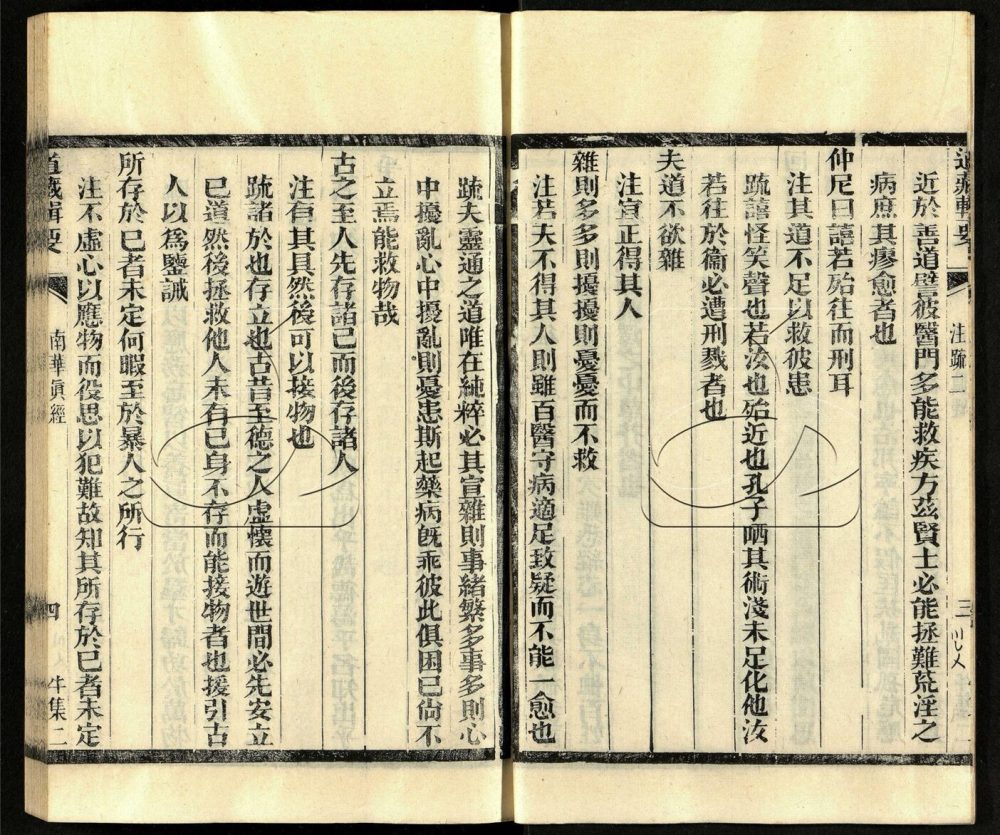 道藏輯要
注疏二
三
近於善道譬彼醫門多能救疾方茲賢士必能拯難荒淫之
病庶其瘳愈者也
仲尼曰譆若殆往而刑耳
注其道不足以救彼患
疏譆怪笑聲也若汝也殆近也孔子哂其術淺未足化他汝
若往於衞必遭刑戮者也
夫道不欲雜
注宜正得其人
雜則多多則擾擾則憂憂而不救
注若夫不得其人則雖百醫守病適足致疑而不能一愈也
疏夫靈通之道唯在純粹必其宣雜則事緒繁多事多則心
中擾亂心中擾亂則憂患斯起藥病旣乖彼此俱困已尙不
立焉能救物哉
古之至人先存諸已而後存諸人
注有其具然後可以接物也
疏諸於也存立也古昔至德之人虛懷而遊世間必先安立
已道然後拯救他人未有已身不存而能接物者也援引古
人以爲鑒誡
所存於已者未定何暇至於暴人之所行
注不虛心以應物而役思以犯難故知其所存於已者未定
道藏輯要
南華眞經
四
牛集二